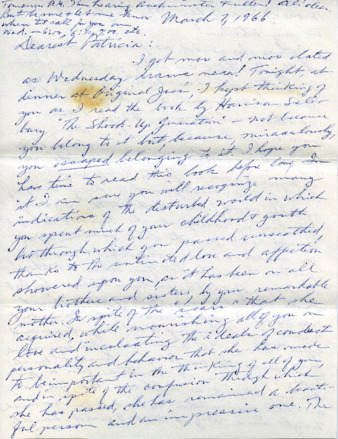 Tomorrow A.M. I'm hearing Buckminster Fuller! All else
But the note to me know
when to call for you on
Wed. — 6:00, 6:30, 7:00 etc.
March 7, 1966.
Dearest Patricia:
I get more and more elated
as Wednesday draws near! Tonight at
dinner at Original Joe's, I kept thinking of
you as I read the book by Harrison Salis-
bury "The Shook-Up Generation" — not because
you belong to it but, because, miraculously,
you escaped belonging to it. I hope you
has time to read this book before long. In
it I am sure you will recognize many
indications of the disturbed world in which
you spent much of your childhood & youth
but through which you passed unscathed,
thanks to the unstinted love and affection
showered upon you, as it has been on all
your brothers and sisters, by your remarkable
mother. In spite of the scars that she
acquired, while nourishing all of you on
love and inculcating the ideals of conduct
personality and behavior that she has made
to be important in the thinking of all of you,
and in spite of the confusion through which
she has passed, she has remained a beauti-
ful person and an impressive one. The